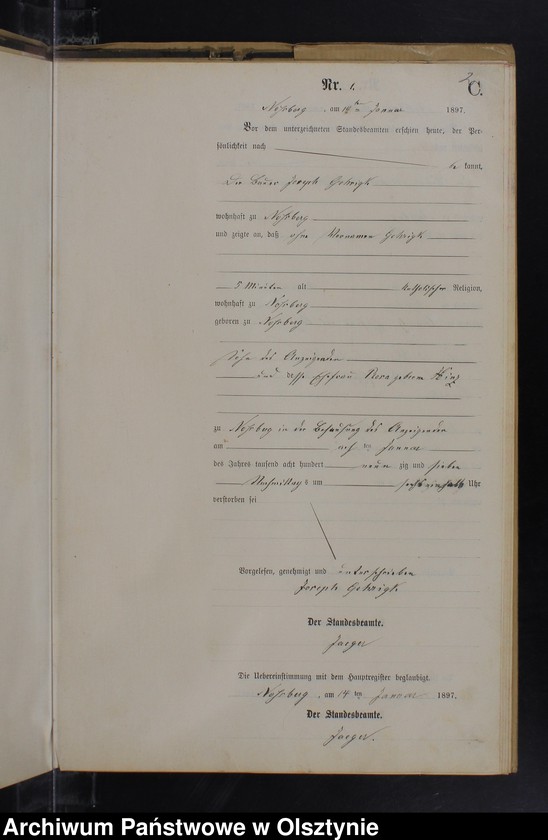 2
C.
Nr. 1.
am 14ten Januar 1897.
Vor dem unterzeichneten Standesbeamten erschien heute, der Per-
sönlichkeit nach
be kannt,
Der Bauer Joseph Gehrigk
wohnhaft zu
und zeigte an, daß ohne Vornamen Gehrigk
5 Minuten alt katholischer Religion,
wohnhaft zu
geboren zu
Sohn des Anzeigenden
und dessen Ehefrau Rosa geborene Hinz
zu in der Behausung des Anzeigenden
am ten Januar
des Jahres tausend acht hundert neun zig und sieben
Nachmittag s um Uhr
verstorben sei
Vorgelesen, genehmigt und unterschrieben
Joseph Gehrigk
Der Standesbeamte.
Jaeger
Die Uebereinstimmung mit dem Hauptregister beglaubigt.
am 14 ten Januar 1897.
Der Standesbeamte.
Jaeger.
Archiwum Państwowe w Olsztynie